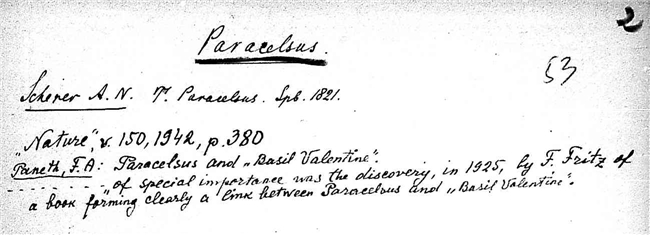 2
Paracelsus.
53
Scherer A. N. T. Paracelsus. Spb. 1821.
"Nature", v. 150, 1942, p. 380
Paneth, F.A: Paracelsus and „Basil Valentine".
„of special importance was the discovery, in 1925, by F. Fritz of
a book forming clearly a link between Paracelsus and „Basil Valentine".